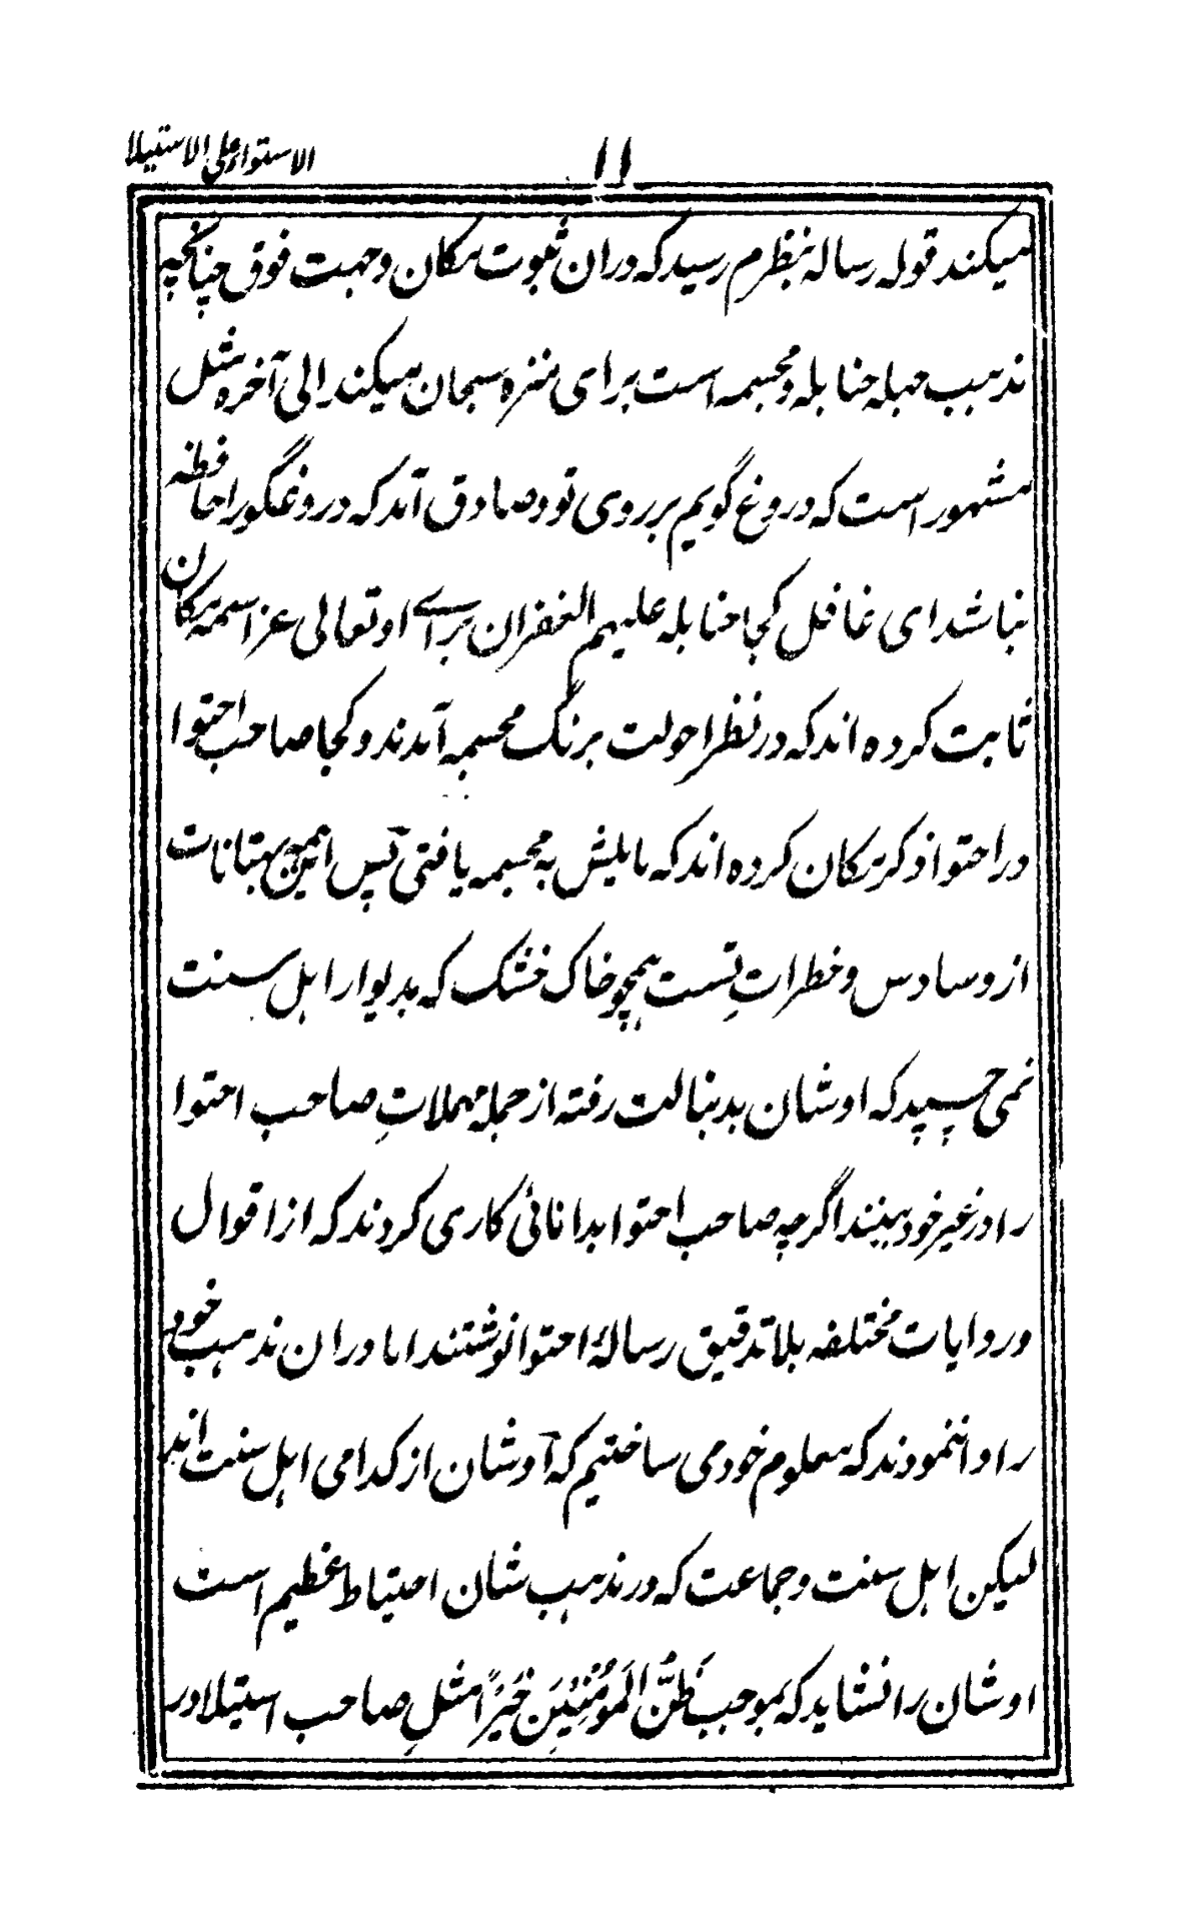 ۱۱
الاستواء علی الاستیلا
میکند قوله رساله بنظرم رسید که دران ثبوت مکان وجهت فوق چنانچه
مذهب جهله حنابله ومجسمه است برای منزه سبحان میکند الی آخره مثل
مشهور است که دروغ گویم بر روی تو وصادق آمد که دروغگورا حافظه
نباشد ای غافل کجا حنابله علیهم الغفران برای او تعالی عز اسمه مکان
ثابت کرده اند که در نظر احولت برنگ مجسمه آمدند وکجا صاحب احتوا
در احتوا ذکر مکان کرده اند که مایلش به مجسمه یافتی پس این بهتانات
از وساوس وخطراتِ تست همچو خاک خشک که بدیوار اهل سنت
نمی چسپد که اوشان بدنبالت رفته از جمله مهملاتِ صاحب احتوا
را در غیر خود بینند اگرچه صاحب احتوا بدانائی کاری کردند که از اقوال
وروایات مختلفه بلا تدقیق رسالهٔ احتوا نوشتند اما دران مذهب خود
را وا ننمودند که معلوم خود می ساختیم که اوشان از کدامی اهل سنت اند
لیکن اهل سنت وجماعت که در مذهب شان احتیاط عظیم است
اوشان را نشاید که بموجب ظُنُّ الْمُؤْمِنِیْنَ خَیْراً مثلِ صاحب استیلا در